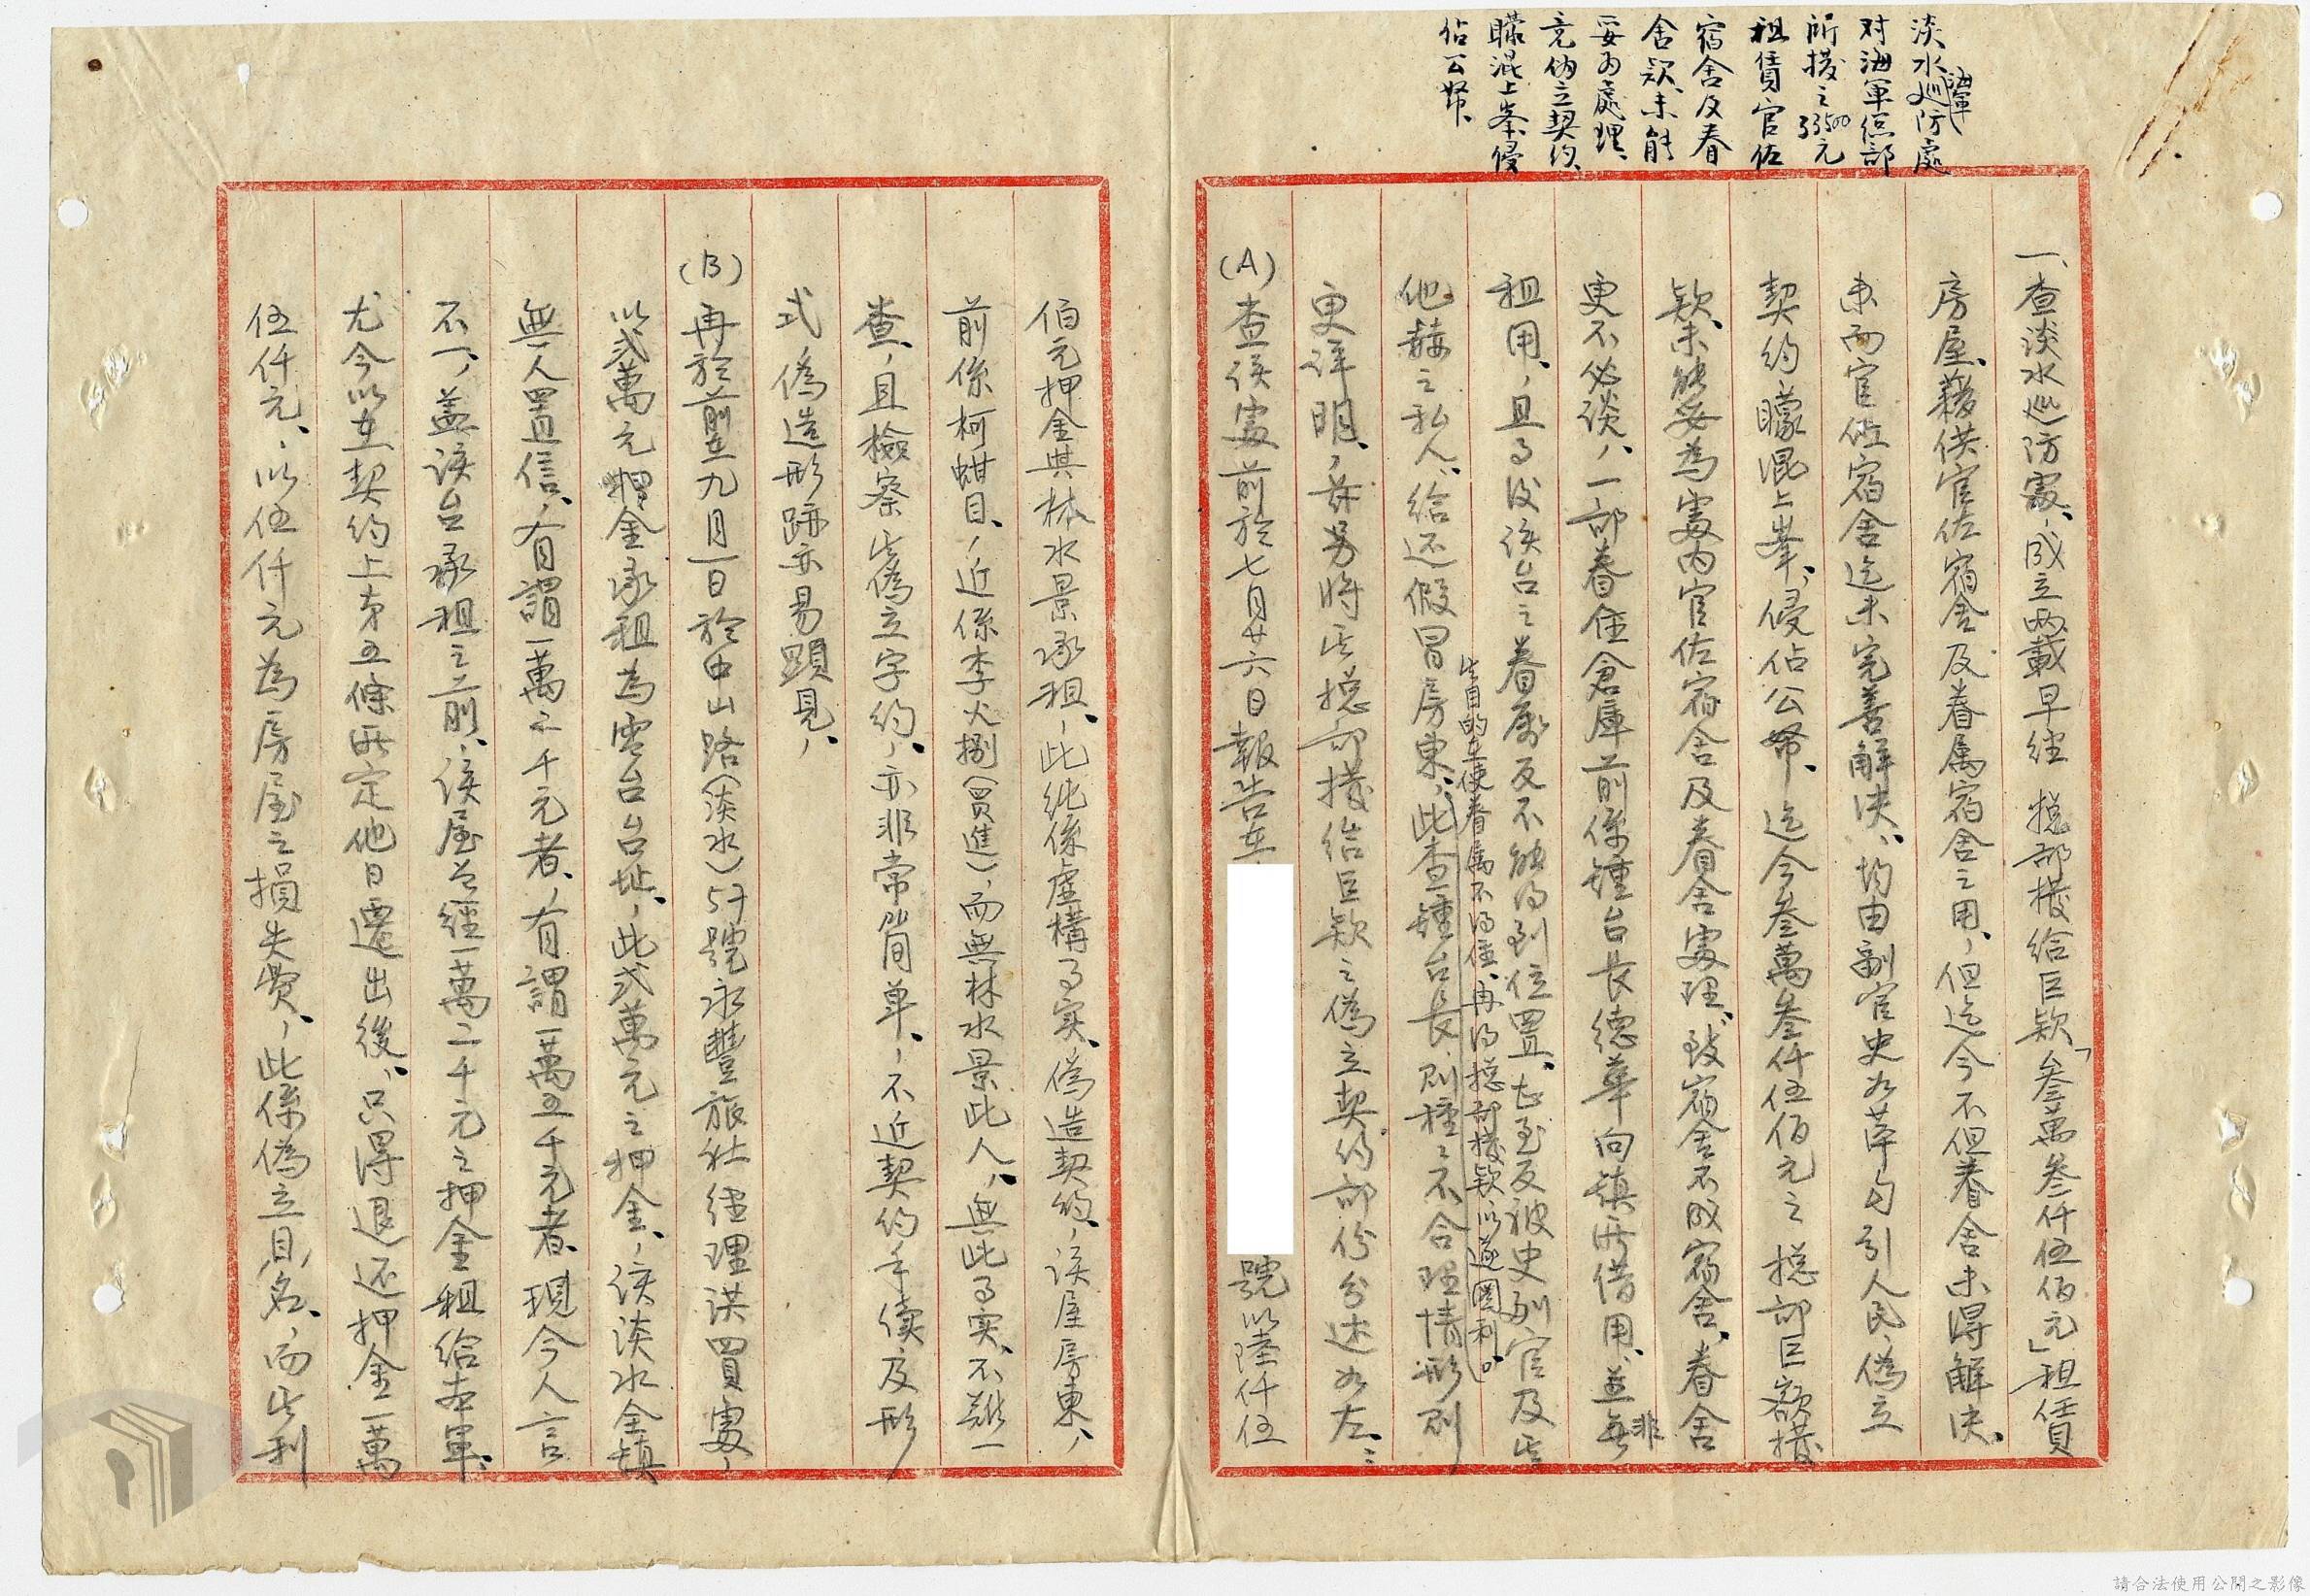 淡水海軍巡防處
对海軍总部
所撥之33500元
租賃官佐
宿舍及眷
舍款未能
妥为處理、
竟偽立契约、
矇混上峯侵
佔公帑、
一、查淡水巡防處、成立兩載早經 總部撥給巨款「叁萬叁仟伍佰元」租賃
房屋、藉供官佐宿舍及眷属宿舍之用、但迄今不但眷舍未得解决、
而官佐宿舍迄未完善解决、均由副官史 勾引人民、偽立
契约矇混上峯、侵佔公帑、迄今叁萬叁仟伍佰元之 總部巨額撥
款、未能妥為處內官佐宿舍及眷舍處理、致宿舍不成宿舍、眷舍
更不必談、一部眷住倉庫前係鍾台長德華向鎮所借用、並非
租用、且 後该台之眷屬反不能得到位置、甚至反被史副官及
其目的在使眷属不得住、再得總部撥款以遂圖利。
他 之私人、給还假冒房東、此查鍾台長、則種種不合理情形則
更詳明、茲另將其總部撥給巨款之偽立契约部份分述如左：
(A)查该處前於七月廿六日報告在 號以陸仟伍
佰元押金與林水景承租、此純係虛構事实、偽造契约、该屋房東、
前係柯蚶目、近係李火捌(買進)、而無林水景此人、無此事实、不難一
查、且檢察其偽立字约、亦非常簡单、不近契约手續及形
式、偽造形跡亦易顕見、
(B)再於前在九月一日於中山路(淡水)57號永豐旅社經理洪四買處、
以弍萬元押金承租為電台台址、此弍萬元之押金、该淡水全鎮
無人置信、有謂一萬二千元者、有謂一萬五千元者、現今人言
不一、盖该台承租之前、该屋曾經一萬二千元之押金租給
尤今以在契约上第五條所定他日遷出後、只得退还押金一萬
伍仟元、以伍仟元為房屋之損失費、此係偽立目名、而其利
請合法使用公開之影像